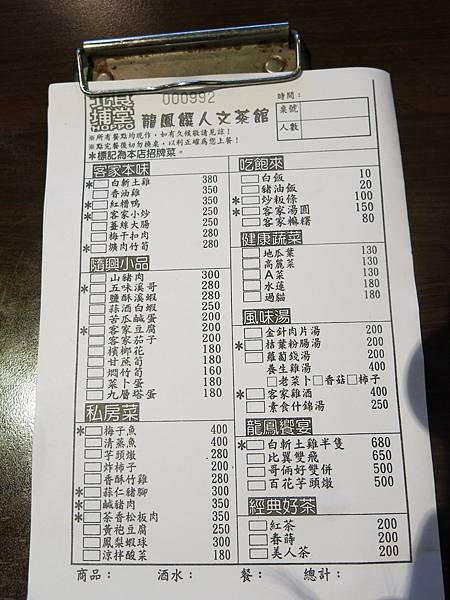 北埔
食堂
000992
龍鳳饌人文茶館
時間：
桌號
人數
※所有餐點均現作，如有久候敬請見諒！
※點完餐後切勿換桌，以利正確為您上餐！
*標記為本店招牌菜。
客家本味
*白斬土雞 380
香油雞 350
*紅糟鴨 350
*客家小炒 250
薑絲大腸 250
梅干扣肉 280
*爌肉竹筍 280
隨興小品
山豬肉 300
*五味溪哥 280
鹽酥溪蝦 280
蒜酒白蝦 250
苦瓜鹹蛋 200
*客家豆腐 200
客家茄子 200
檳榔花 180
甘蔗筍 180
燜竹筍 160
菜卜蛋 180
九層塔蛋 180
私房菜
*梅子魚 400
清蒸魚 400
芋頭燉 280
炸柿子 200
香酥竹雞 280
*蒜仁豬腳 300
*鹹豬肉 350
*茶香松板肉 350
黃袍豆腐 250
鳳梨蝦球 300
涼拌酸菜 180
吃飽來
白飯 10
豬油飯 20
*炒粄條 100
*客家湯圓 150
客家麻糬 80
健康蔬菜
地瓜葉 130
高麗菜 130
A菜 130
水蓮 180
過貓 180
風味湯
金針肉片湯 200
*桔葉粉腸湯 200
蘿蔔錢湯 200
養生雞湯 400
老菜卜 香菇 柿子
*客家雞酒 400
素食什錦湯 250
龍鳳饗宴
*白斬土雞半隻 680
比翼雙飛 650
哥倆好雙併 500
百花芋頭燉 500
經典好茶
紅茶 200
春蒔 200
美人茶 200
商品： 酒水： 餐： 總計：